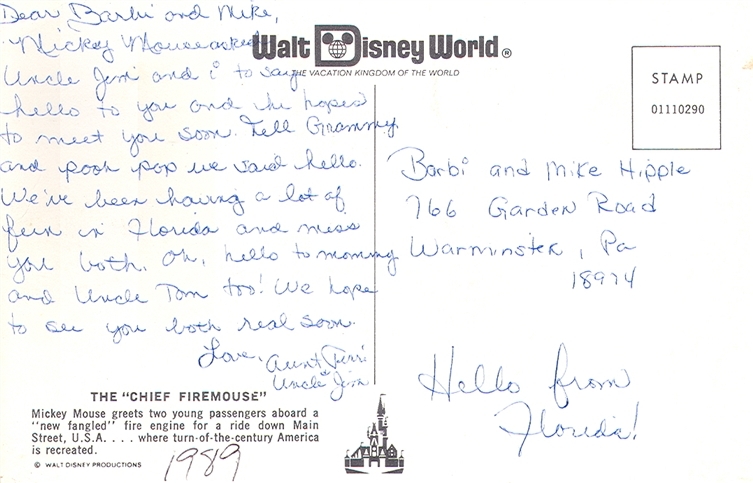 Dear Barbi and Mike,
Mickey Mouse asked
Uncle Jim and i to say
hello to you and he hopes
to meet you soon. Tell Grammy
and pooh pop we said hello.
We've been having a lot of
fun in Florida and miss
you both. Oh, hello to mommy
and Uncle Tom too! We hope
to see you both real soon.
Love, Aunt Terri
& Uncle Jim
Walt Disney World®
THE VACATION KINGDOM OF THE WORLD
STAMP
01110290
Barbi and Mike Hipple
766 Garden Road
Warminster, Pa
18974
Hello from
Florida!
THE "CHIEF FIREMOUSE"
Mickey Mouse greets two young passengers aboard a
"new fangled" fire engine for a ride down Main
Street, U.S.A. . . . . where turn-of-the-century America
is recreated.
© WALT DISNEY PRODUCTIONS
1989